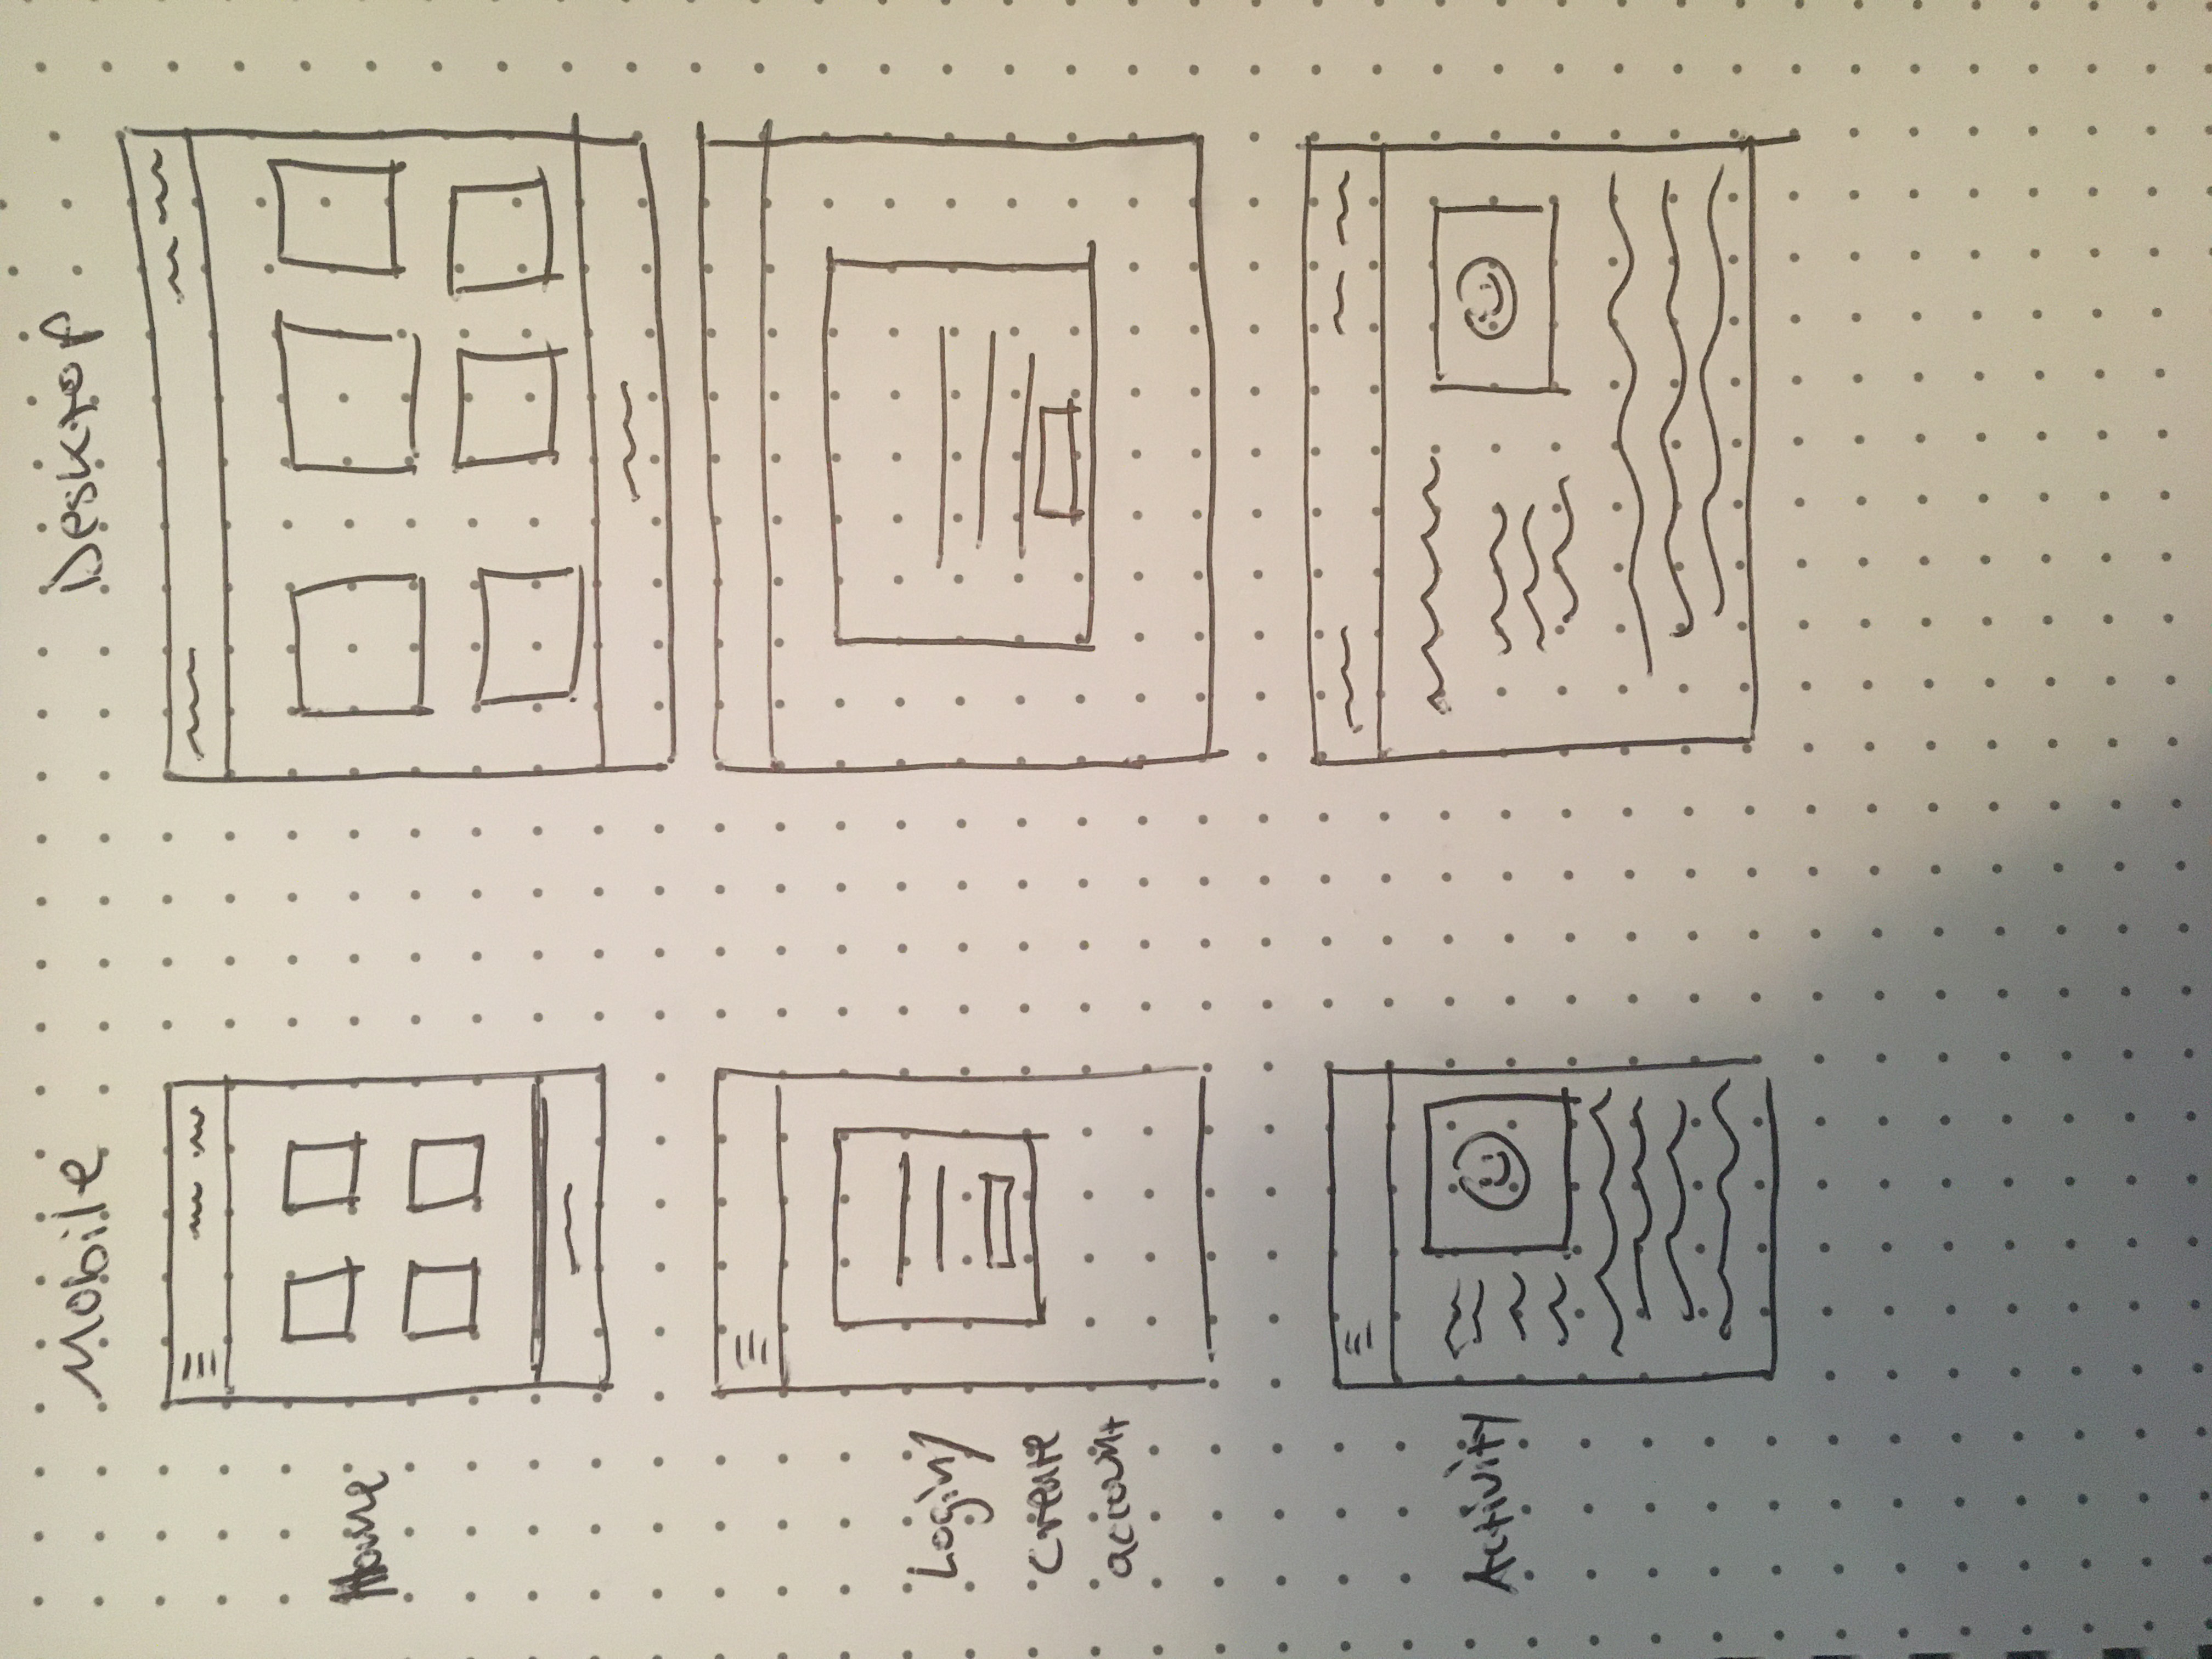 Mobile
Desktop
Home
Login/
create
account
Activity